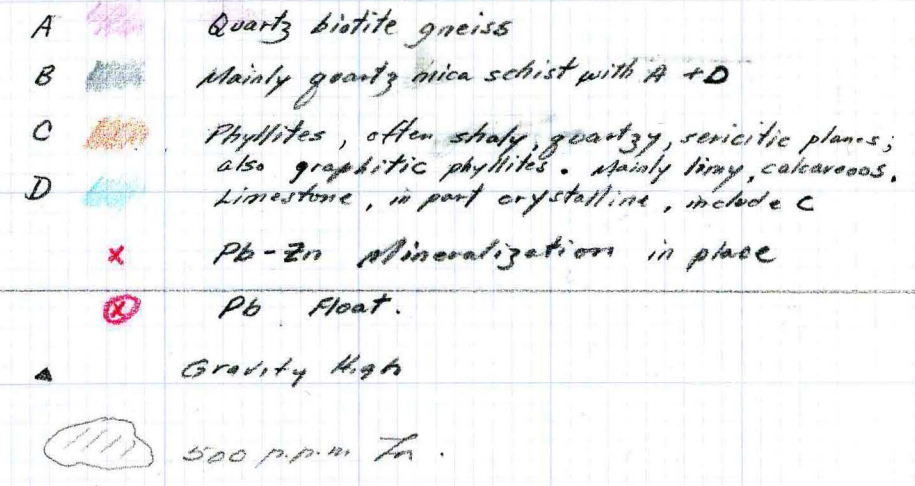 A Quartz biotite gneiss
B Mainly quartz mica schist with A + D
C Phyllites, often shaly, quartzy, sericitic planes;
also graphitic phyllites. Mainly limy, calcareous.
D Limestone, in part crystalline, include C
x Pb-Zn Mineralization in place
x Pb Float.
Gravity High
500 p.p.m. Zn.